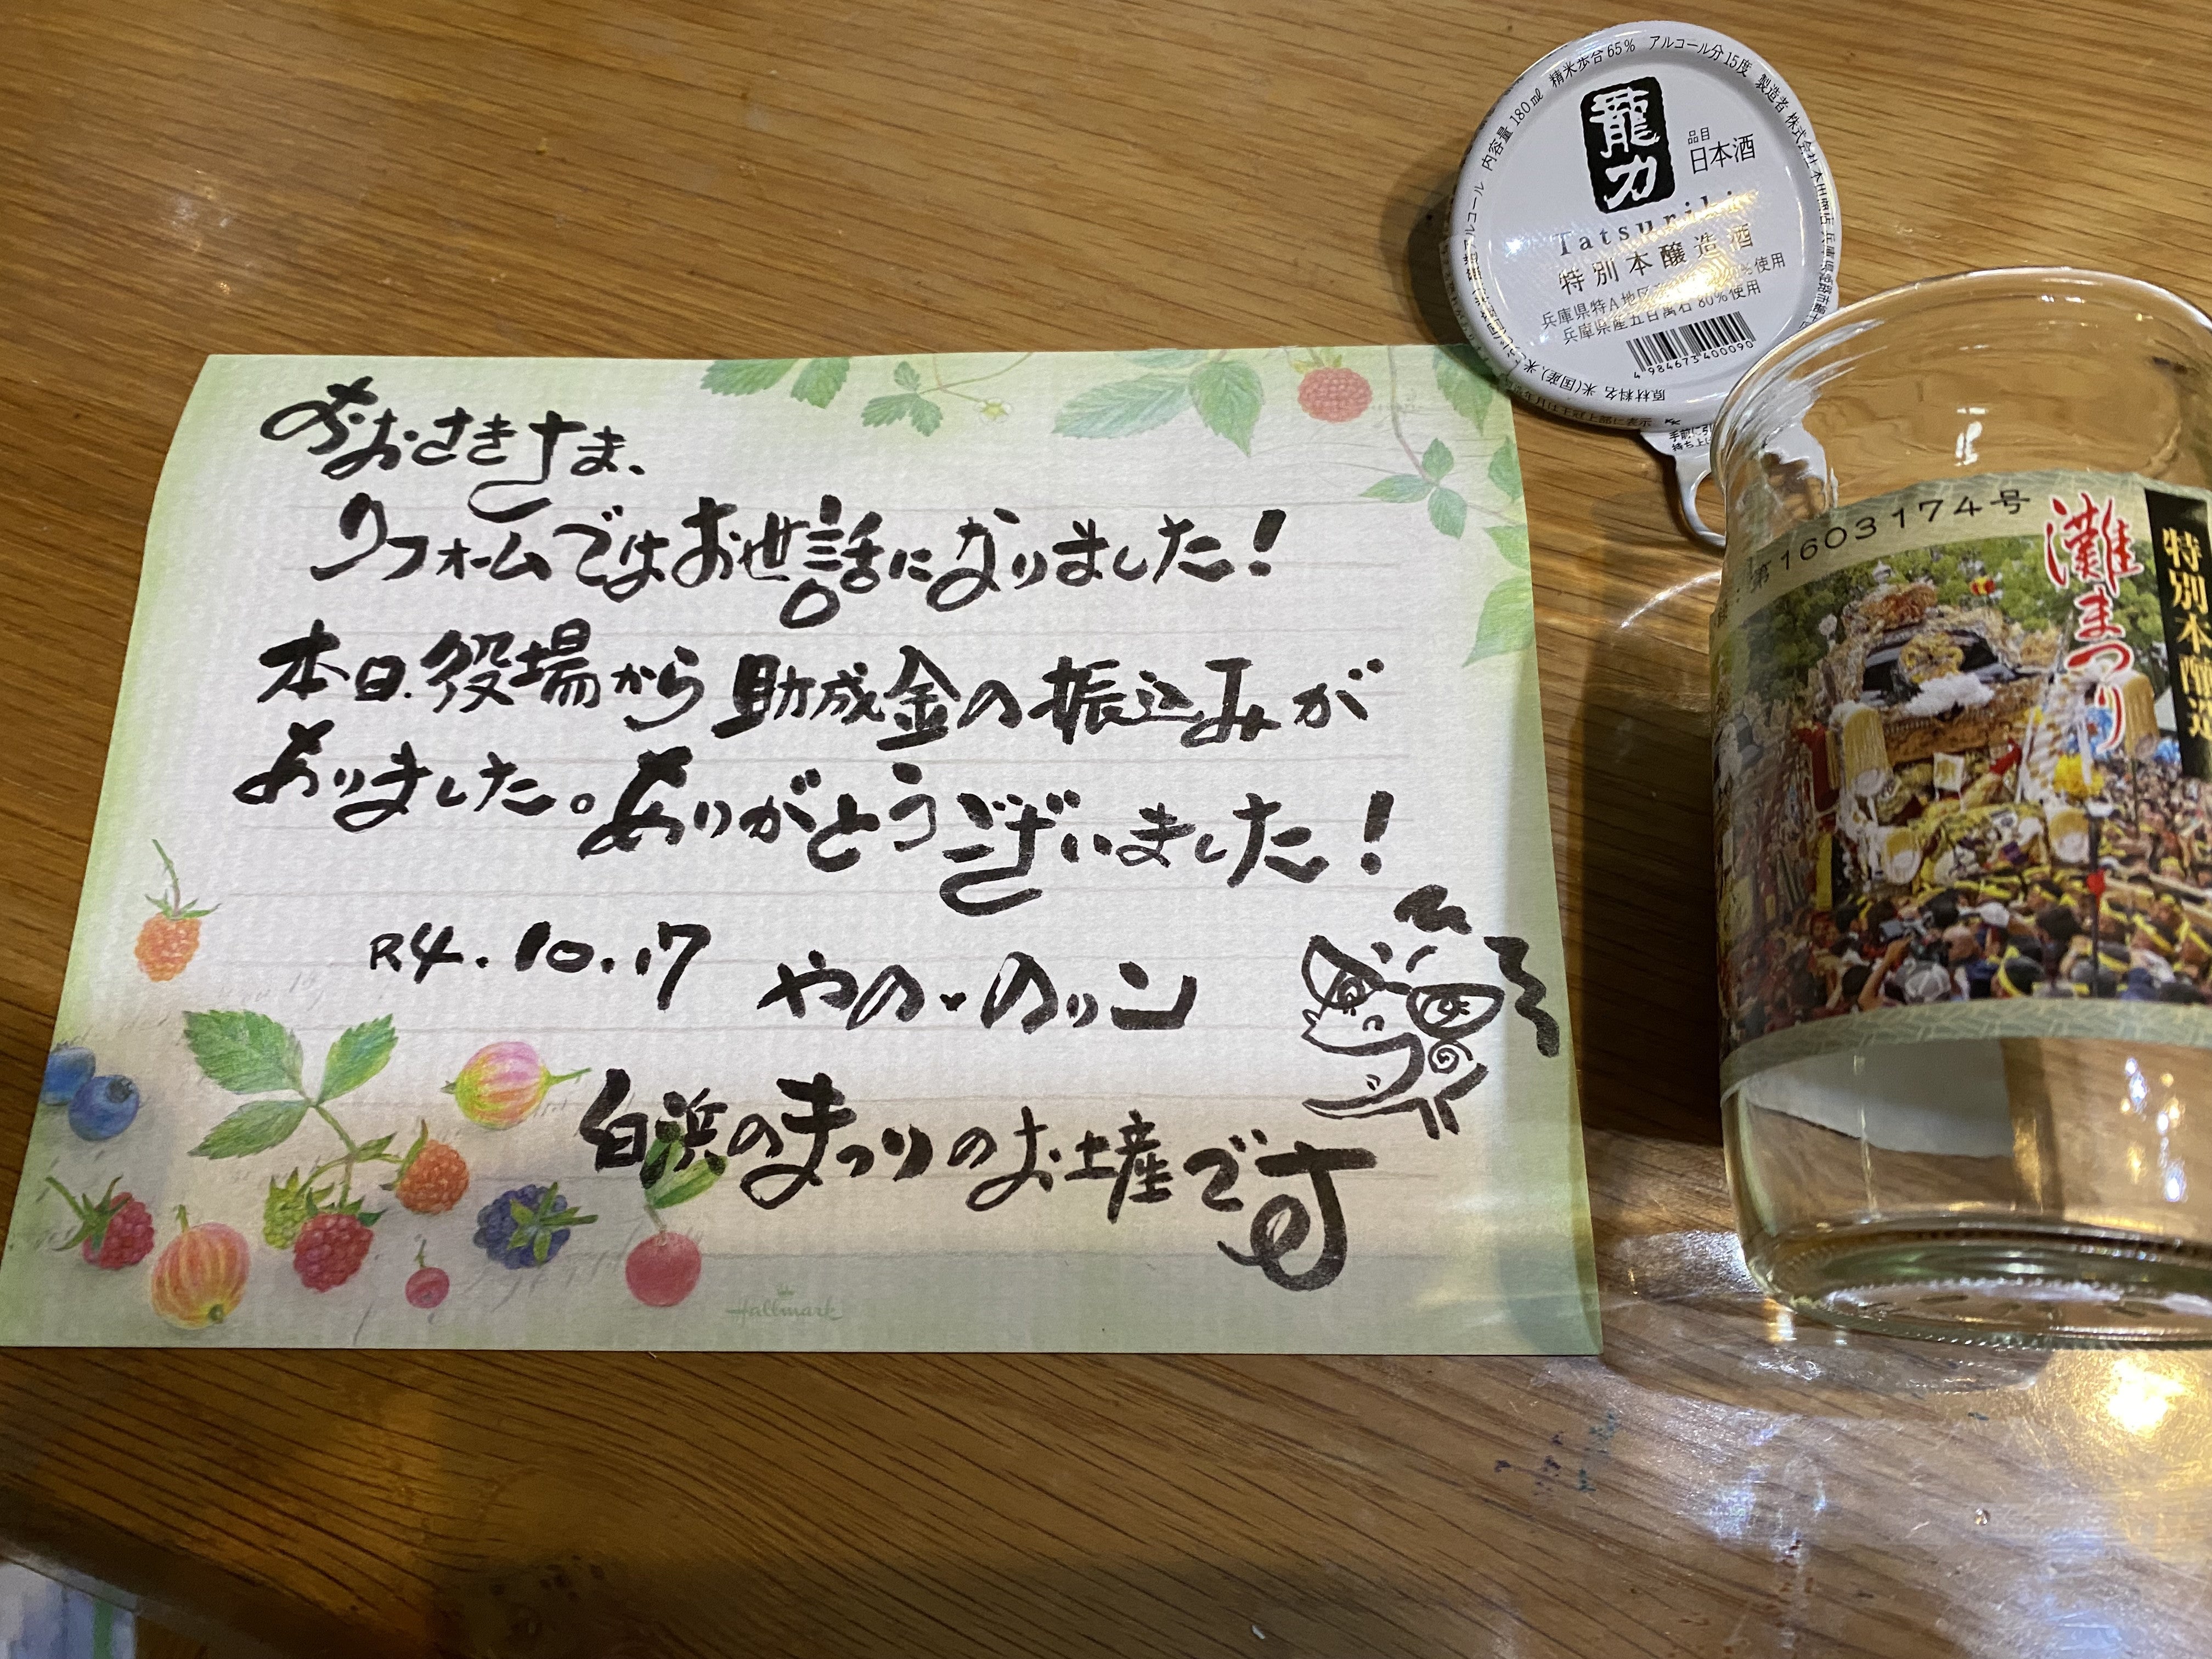 おおさきさま、
リフォームではお世話になりました!
本日、役場から助成金の振込みが
ありました。ありがとうございました!
R4.10.17 やの・のりこ
白浜のまつりのお土産です
Hallmark
内容量 180mℓ 精米歩合65% アルコール分15度 製造者 株式会社本田商店
龍力
品目
日本酒
Tatsuriki
特別本醸造酒
兵庫県特A地区
20%使用
兵庫県産五百萬石 80%使用
4 984673 400090
原材料名 米(国産)、米こうじ(国産米)、醸造アルコール
第1603174号
灘まつり
特別本醸造